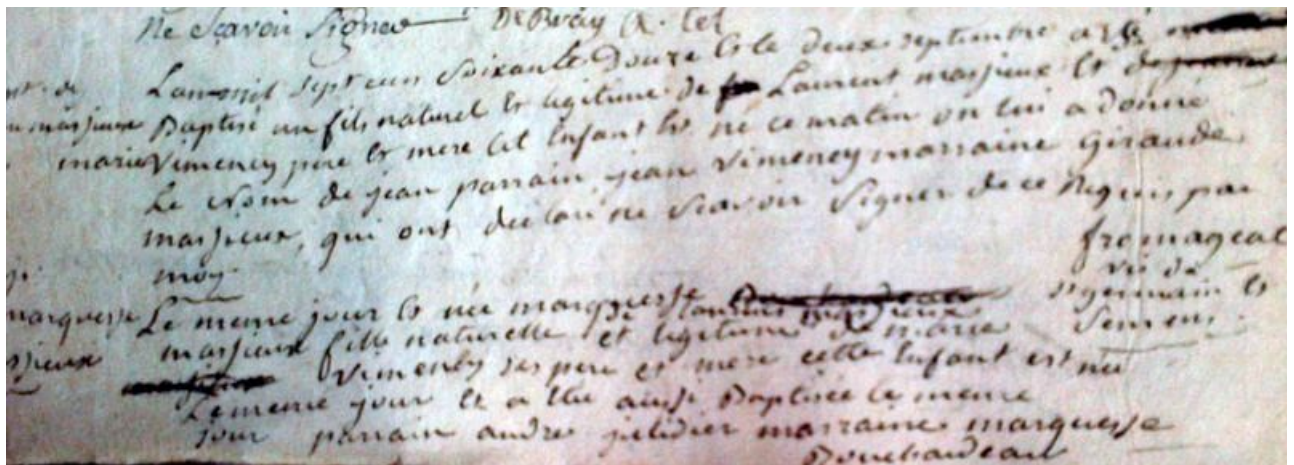 ne scavoir signer DeBray
L'an mil sept cens soixante douze et le deux septembre a été
Baptisé un fils naturel et legitime de Laurent masjieux et de
marie Vimeney pere et mere cet Enfant est né ce matin on lui a donné
Le Nom de jean parrain jean Vimeney marraine Giraude
masjieux, qui ont declaré ne scavoir signer de ce Requis par
moy fromageal
vic. de
st germain et
Le meme jour est née marquesse
masjieux fille naturelle et legitime de Laurens masjieux de marie
Vimeney ses pere et mere cette Enfant est née
Le meme jour et a été aussi Baptisée le meme
jour parrain andre marraine marquesse
marquesse